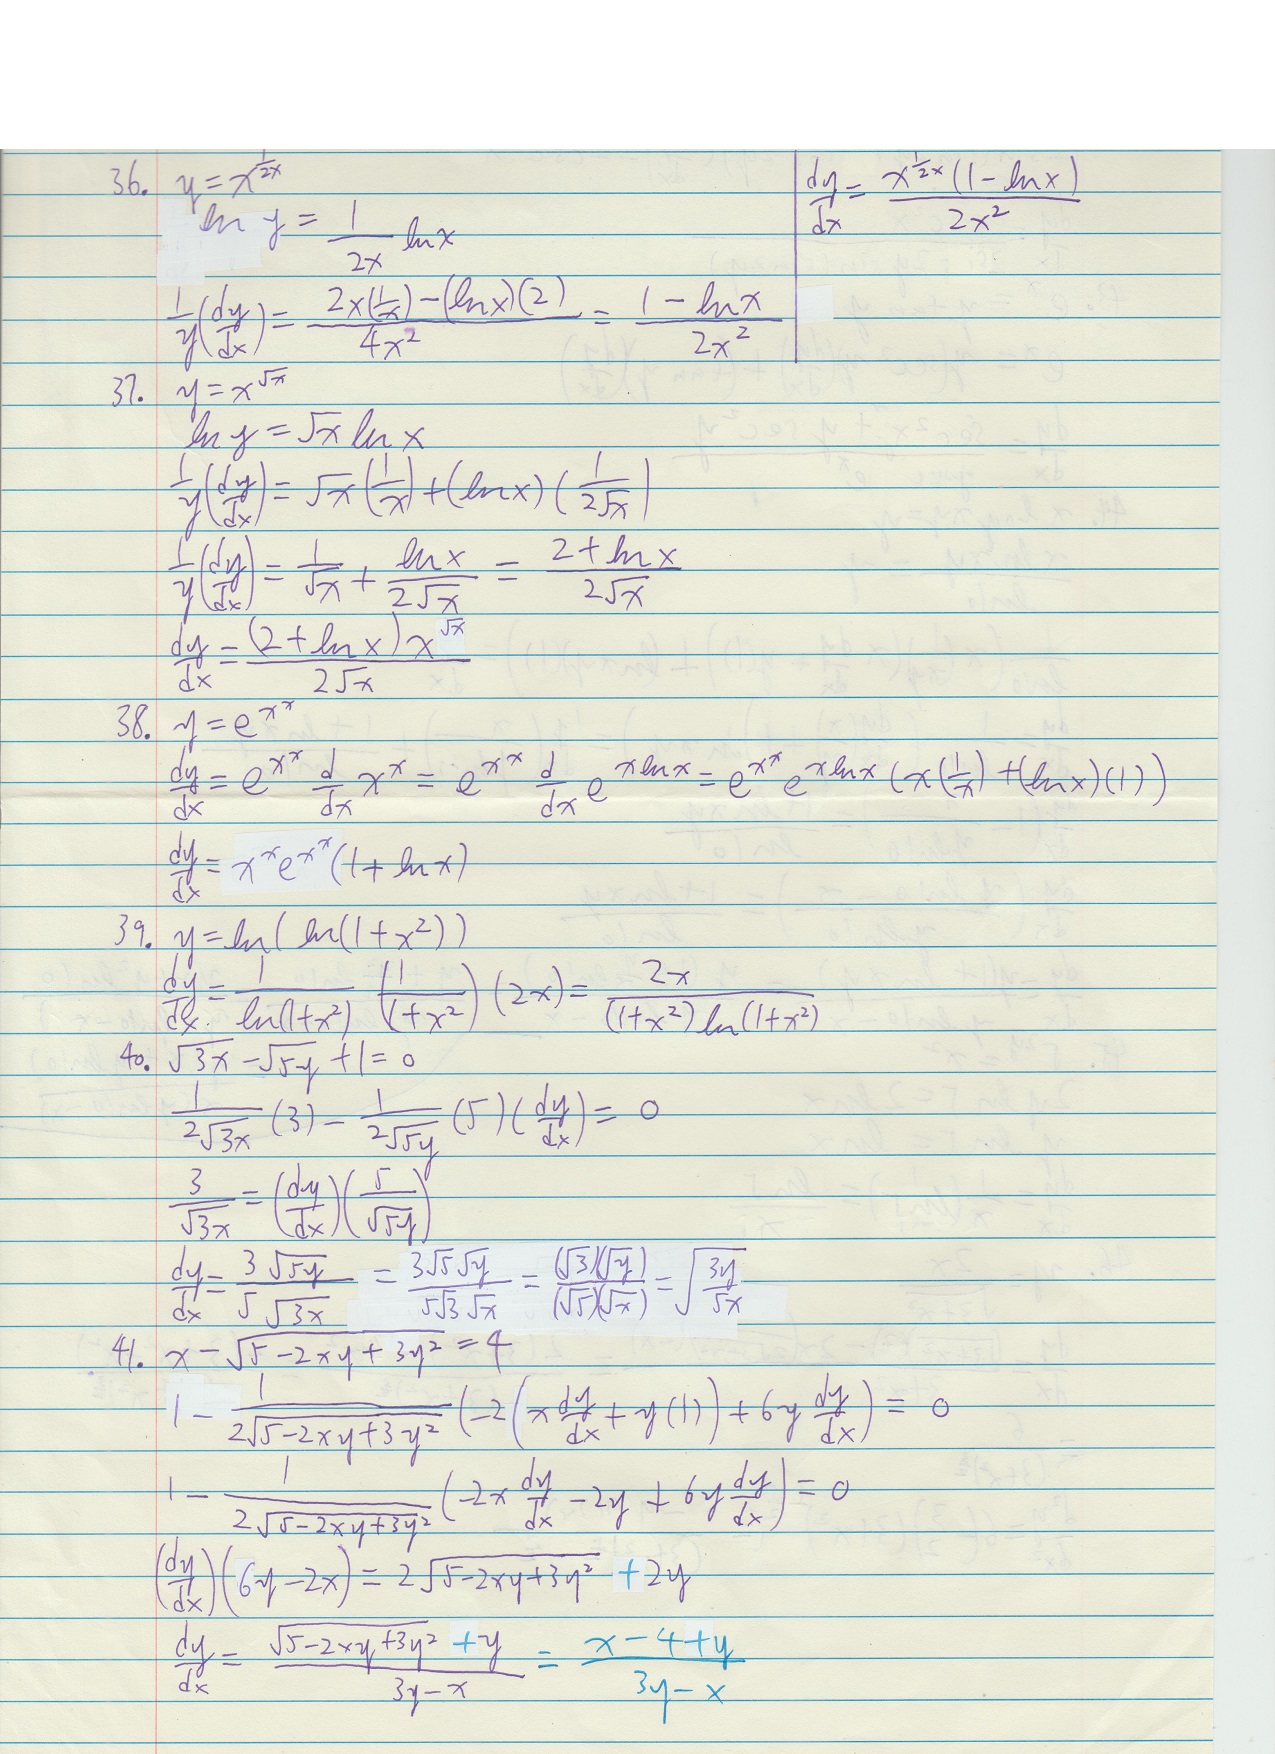 36. y = x^(1/2x)
ln y = 1/(2x) ln x
1/y (dy/dx) = (2x(1/x) - (ln x)(2))/(4x²) = (1 - ln x)/(2x²)
dy/dx = (x^(1/2x) (1 - ln x))/(2x²)
37. y = x^√x
ln y = √x ln x
1/y (dy/dx) = √x (1/x) + (ln x) (1/(2√x))
1/y (dy/dx) = 1/√x + (ln x)/(2√x) = (2 + ln x)/(2√x)
dy/dx = ((2 + ln x) x^√x)/(2√x)
38. y = e^(x^x)
dy/dx = e^(x^x) d/dx x^x = e^(x^x) d/dx e^(x ln x) = e^(x^x) e^(x ln x) (x(1/x) + (ln x)(1))
dy/dx = x^x e^(x^x) (1 + ln x)
39. y = ln( ln(1 + x²))
dy/dx = 1/(ln(1+x²)) (1/(1+x²)) (2x) = 2x/((1+x²) ln(1+x²))
40. √(3x) - √(5y) + 1 = 0
1/(2√(3x)) (3) - 1/(2√(5y)) (5) (dy/dx) = 0
3/√(3x) = (dy/dx)(5/√(5y))
dy/dx = (3√(5y))/(5√(3x)) = (3√5√y)/(5√3√x) = ((√3)(√y))/((√5)(√x)) = √(3y/5x)
41. x - √(5 - 2xy + 3y²) = 4
1 - 1/(2√(5-2xy+3y²)) (-2(x dy/dx + y(1)) + 6y dy/dx) = 0
1 - 1/(2√(5-2xy+3y²)) (-2x dy/dx - 2y + 6y dy/dx) = 0
(dy/dx)(6y - 2x) = 2√(5-2xy+3y²) + 2y
dy/dx = (√(5-2xy+3y²) + y)/(3y - x) = (x - 4 + y)/(3y - x)